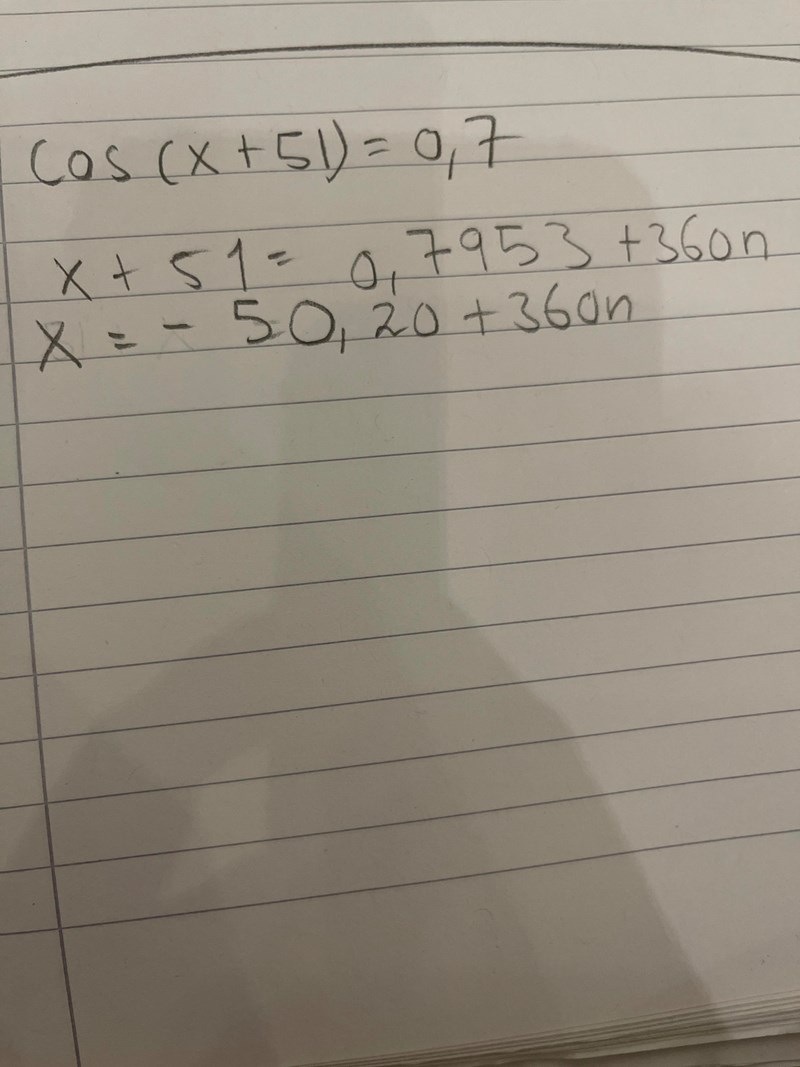 cos (x+51) = 0,7
x + 51 = 0,7953 +360n
x = - 50,20 +360n